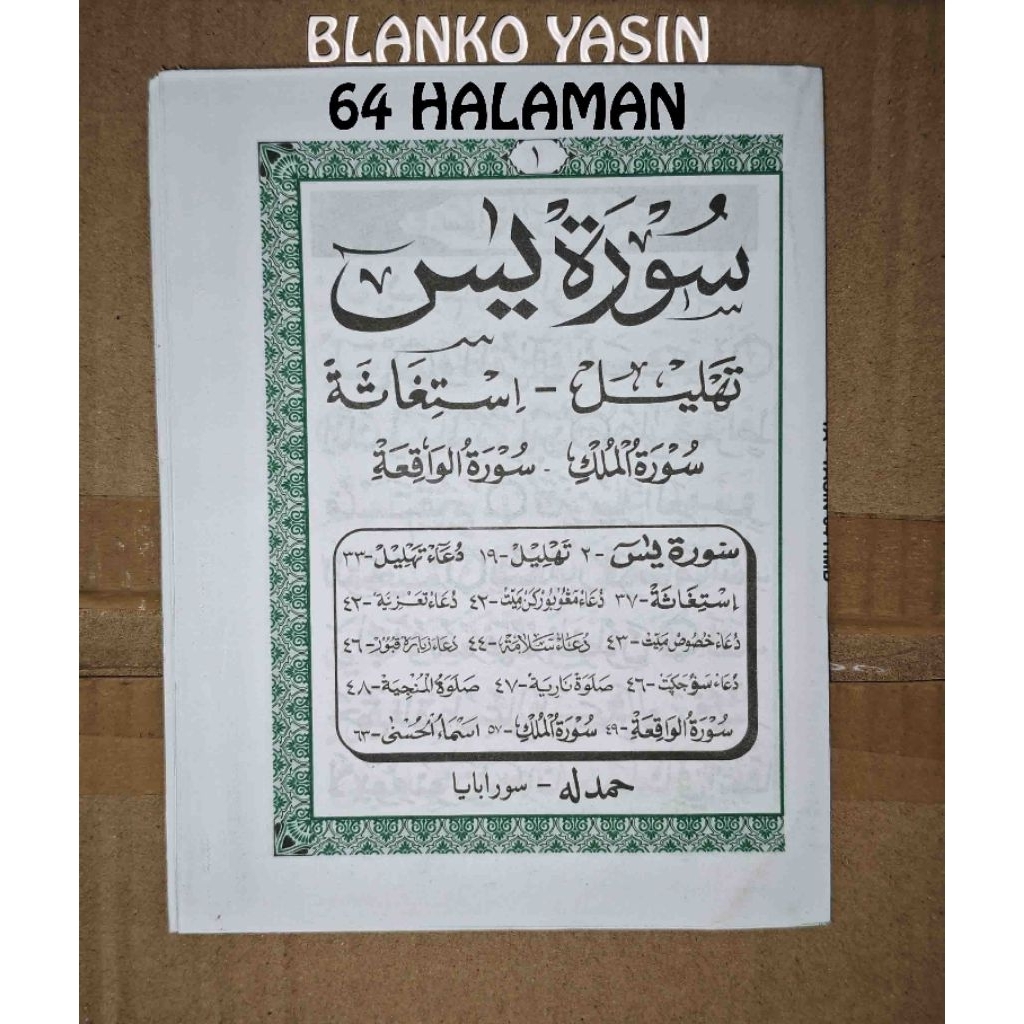 BLANKO YASIN
64 HALAMAN
١
سُوْرَة يٰسٓ
تَهْلِيْل - اِسْتِغَاثَة
سُوْرَةُ الْمُلْكِ - سُوْرَةُ الوَاقِعَةِ
سُورة يٰسٓ - ٢ تَهْلِيْل - ١٩ دُعَاء تَهْلِيْل - ٣٣
اِسْتِغَاثَة - ٣٧ دُعَاء مڠوبوركن مَيِّت - ٤٢ دُعَاء تَعْزِيَة - ٤٢
دُعَاء خُصُوْص مَيِّت - ٤٣ دُعَاء سَلَامَة - ٤٤ دُعَاء زِيَارَة قُبُوْر - ٤٦
دُعَاء - ٤٦ صَلَوة نَارِيَة - ٤٧ صَلَوةُ الْمُنْجِيَة - ٤٨
سُوْرَةُ الوَاقِعَة - ٤٩ سُوْرَةُ الْمُلْكِ - ٥٧ اَسْمَاءُ الْحُسْنٰى - ٦٣
حمدله - سورابايا